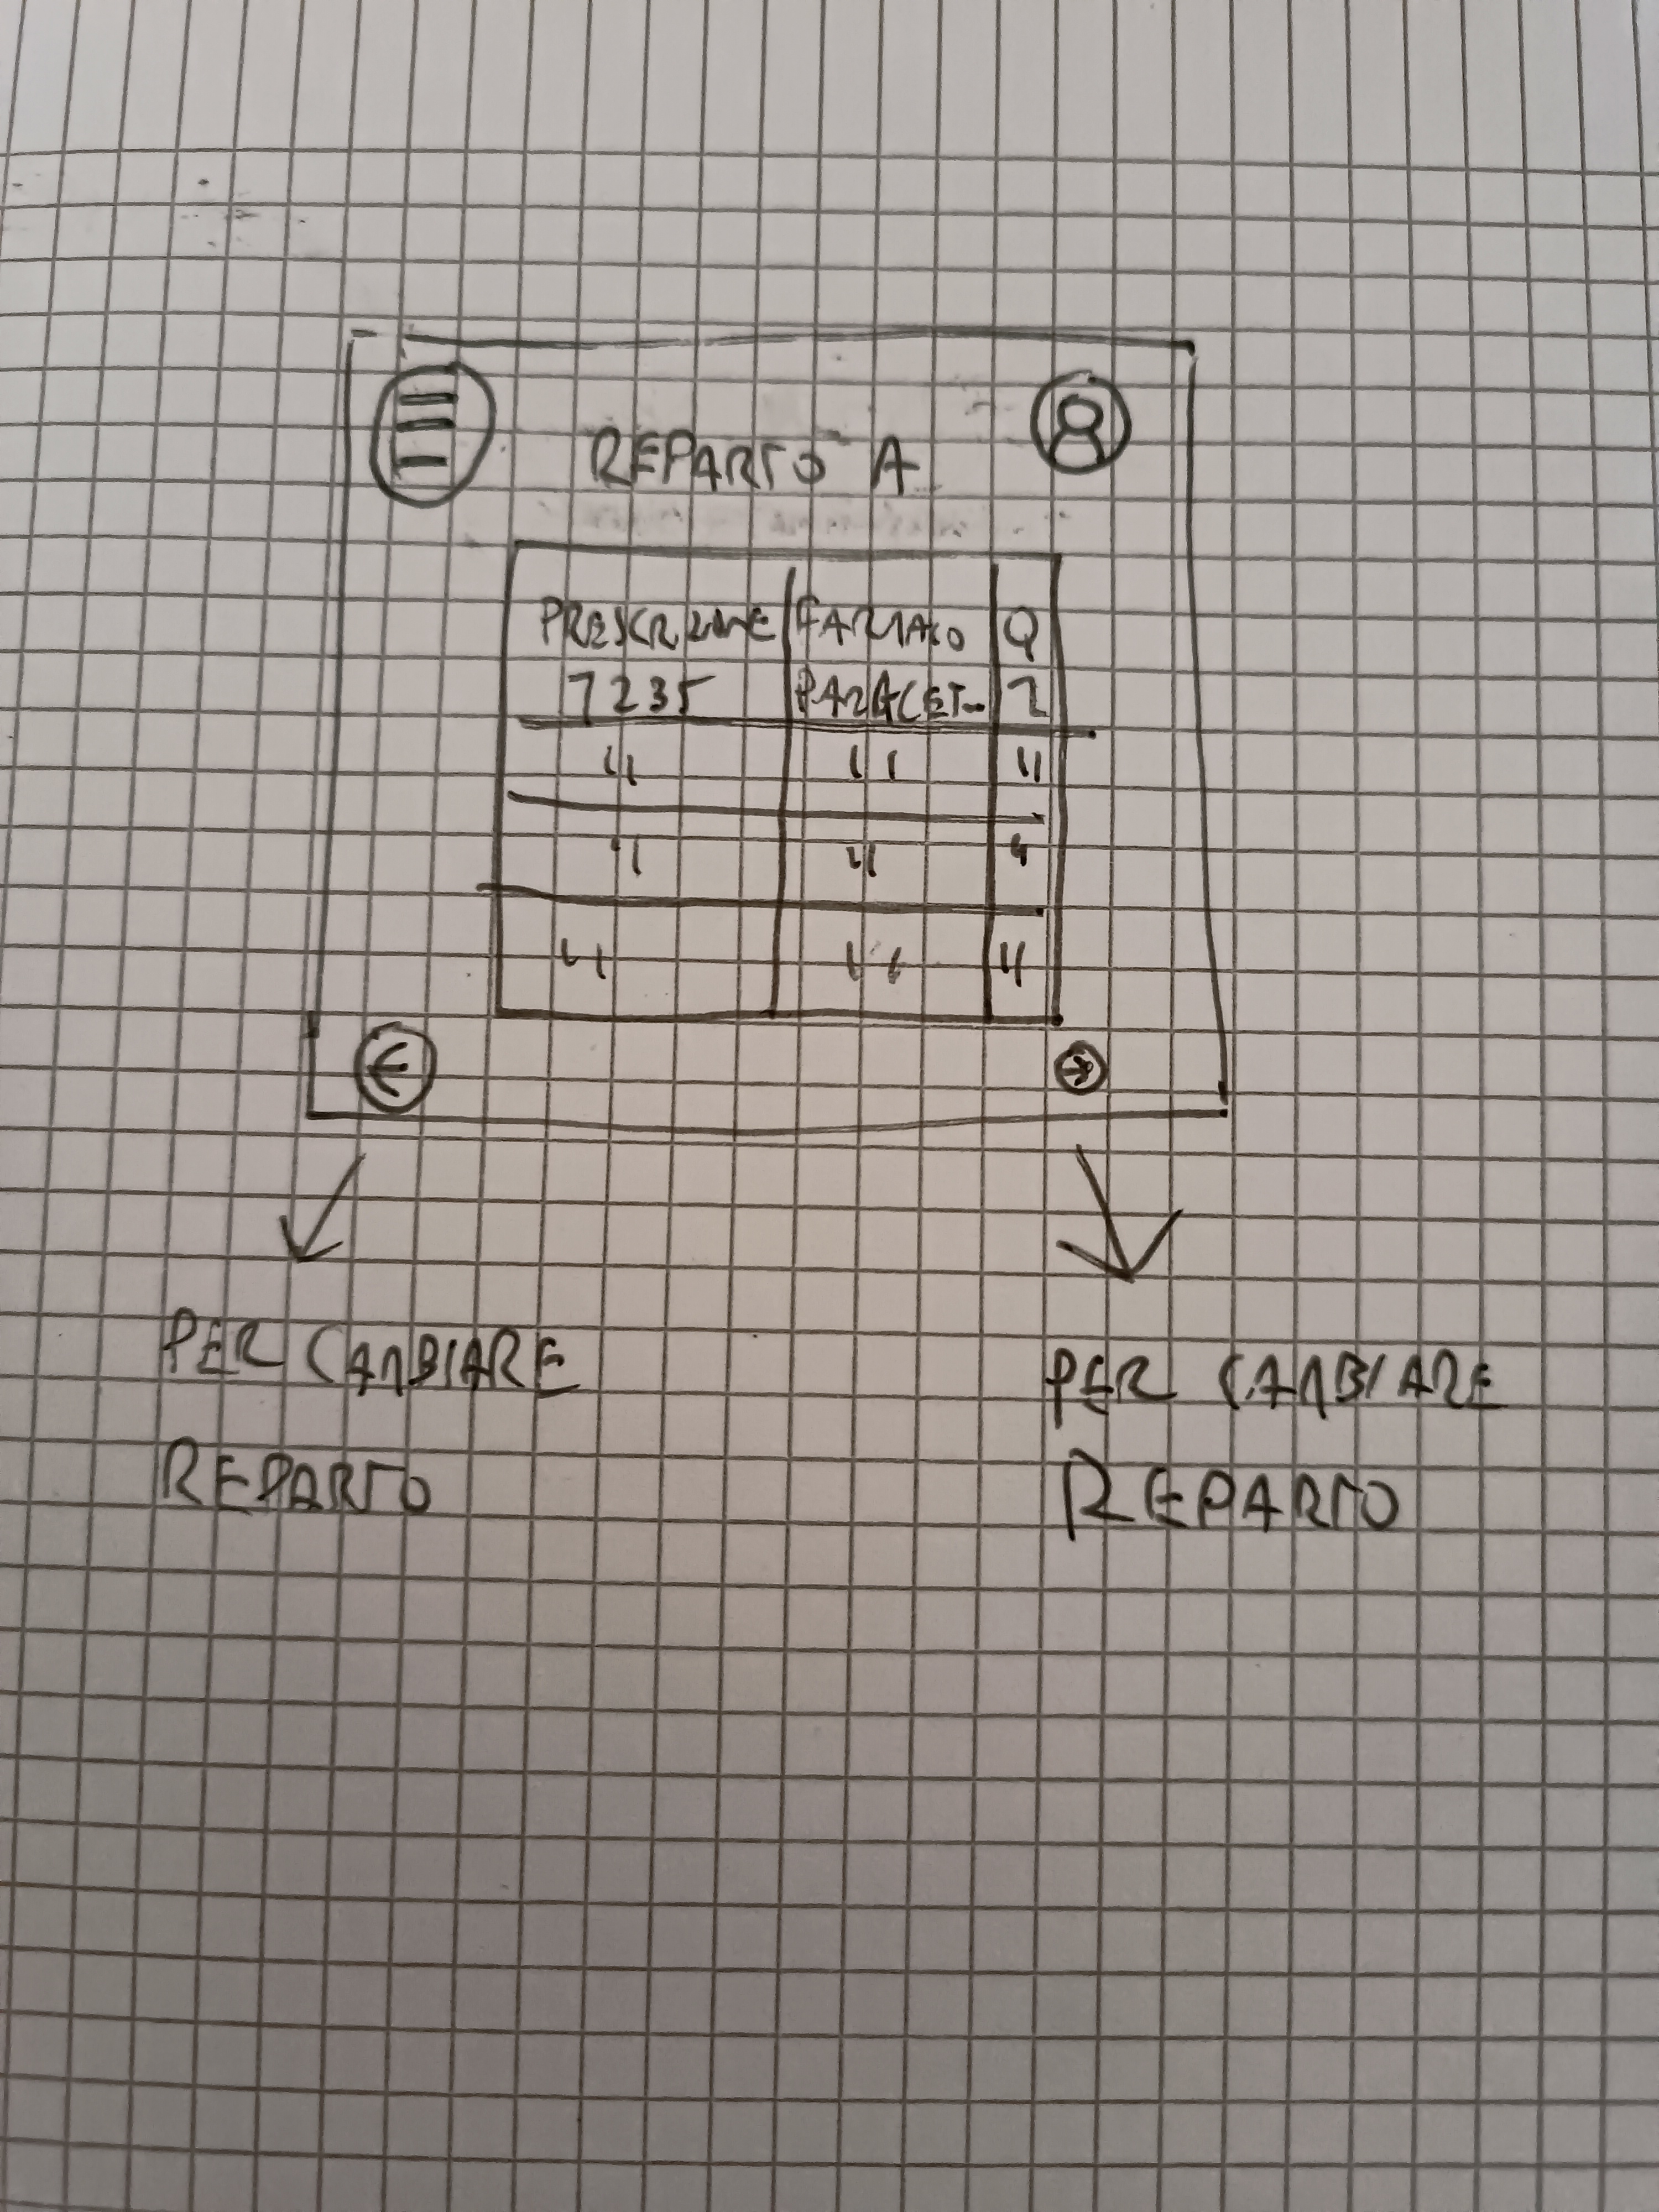 REPARTO A
PRESCRZIONE FARMACO Q
7235 PARACET... 2
" " "
" " "
" " "
PER CAMBIARE
REPARTO
PER CAMBIARE
REPARTO